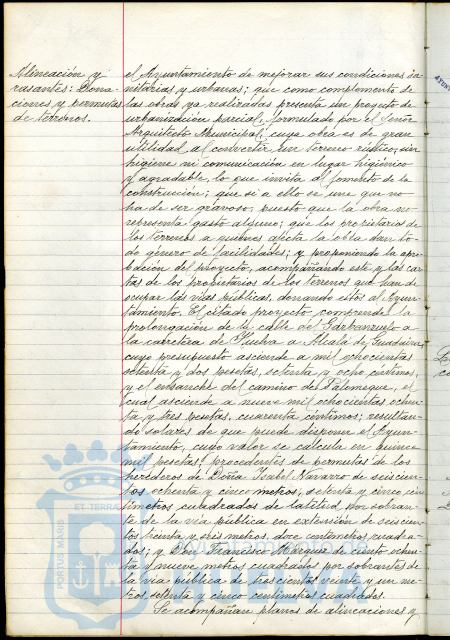 Alineación y
rasantes: Dona-
ciones y permutas
de terrenos.
el Ayuntamiento de mejorar sus condiciones sa-
nitarias y urbanas; que como complemento de
las obras ya realizadas presenta un proyecto de
urbanización parcial, formulado por el Señor
Arquitecto Municipal, cuya obra es de gran
utilidad al convertir un terreno rústico, sin
higiene ni comunicación en lugar higiénico
y agradable, lo que invita al fomento de la
construcción; que si a ello se une que no
ha de ser gravoso, puesto que la obra no
representa gasto alguno; que los propietarios de
los terrenos a quienes afecta la obra dan to-
do género de facilidades; y proponiendo la apro-
bación del proyecto, acompañando este y las car-
tas de los propietarios de los terrenos que han de
ocupar las vías públicas, donando estos al Ayun-
tamiento. El citado proyecto comprende la
prolongación de la calle del Garbanzuelo a
la carretera de Huelva a Alcalá de Guadaira,
cuyo presupuesto asciende a mil ochocientas
setenta y dos pesetas, setenta y ocho céntimos,
y el ensanche del camino del Palomeque, el
cual asciende a nueve mil ochocientas ochen-
ta y tres pesetas, cuarenta céntimos; resultan-
do solares de que puede disponer el Ayun-
tamiento, cuyo valor se calcula en quince
mil pesetas, procedentes de permutas de los
herederos de Doña Isabel Navarro de seiscien-
tos ochenta y cinco metros, setenta y cinco cen-
tímetros cuadrados de latitud, por sobran-
te de la vía pública en extensión de seiscien-
tos treinta y seis metros doce centímetros cuadra-
dos; y Don Francisco Márquez de ciento ochen-
ta y nueve metros cuadrados por sobrantes de
la vía pública de trescientos veinte y un me-
tros setenta y cinco centímetros cuadrados.
Se acompañan planos de alineaciones y
ET TERRA
PORTUS MARIS